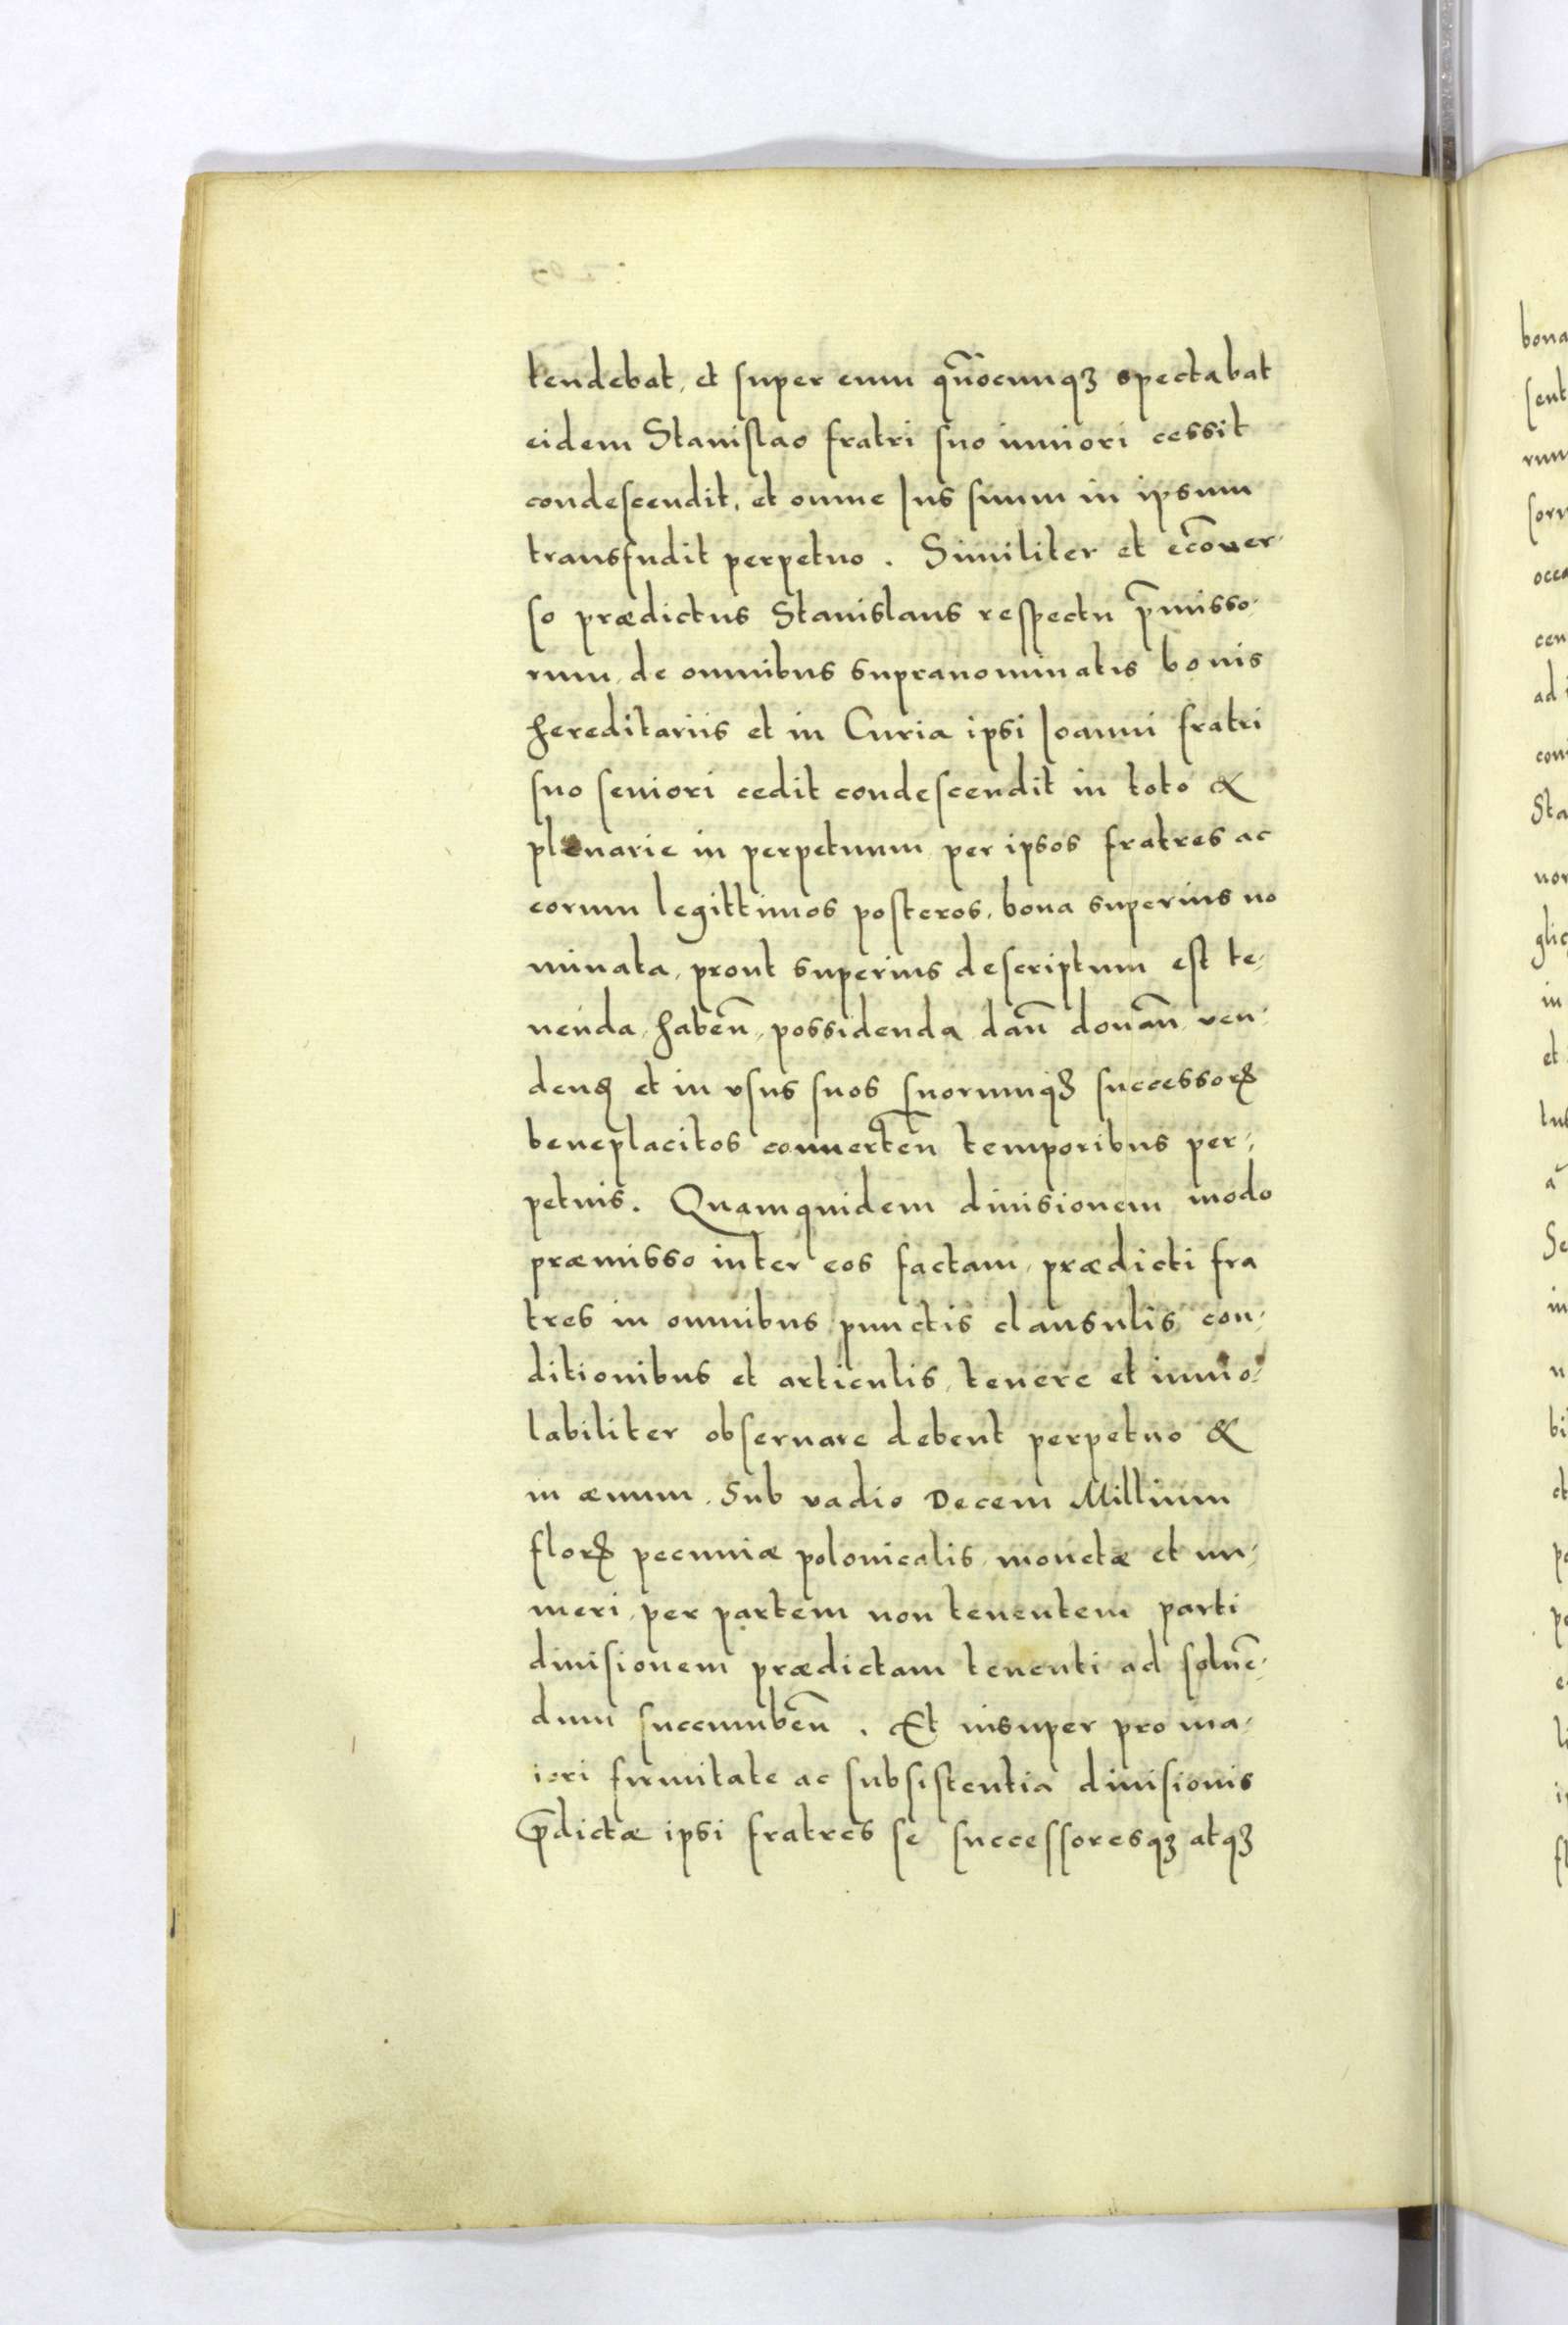 tendebat, et super eum qũocunqꝫ spectabat
eidem Stanislao fratri suo iuniori cessit
condescendit, et omne Ius suum in ipsum
transfudit perpetuo. Similiter et ecõuer-
so prædictus Stanislaus respectu p̃misso-
rum, de omnibus supranominatis bonis
hereditariis et in Curia ipsi Ioanni fratri
suo seniori cedit condescendit in toto &
plenarie in perpetuum, per ipsos fratres ac
eorum legittimos posteros, bona superius no
minata, prout superius descriptum est te-
nenda, habeñ, possidenda, dañ donañ, ven-
denđ et in vsus suos suorumqꝫ successorꝝ
beneplacitos conuerteñ temporibus per-
petuis. Quamquidem diuisionem modo
præmisso inter eos factam, prædicti fra
tres in omnibus punctis clausulis, con-
ditionibus et articulis, tenere et inuio-
labiliter obseruare debent perpetuo &
in æuum. Sub vadio Decem Millium
florꝝ pecuniæ polonicalis, monetæ et nu-
meri, per partem non tenentem parti
diuisionem prædictam tenenti ad soluẽ-
dum succumbeñ. Et insuper pro ma-
iori firmitate ac subsistentia diuisionis
p̃dictæ ipsi fratres se successoresqꝫ atqꝫ
bona
sent
rum
cen
ad
Sta
in
et